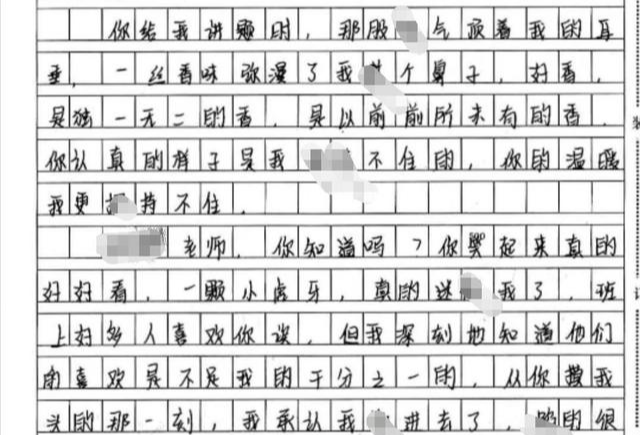 你给我讲题时，那股气顶着我的耳
垂，一丝香味弥漫了我个鼻子，好香，
是独一无二的香，是以前前所未有的香．
你认真的样子是我不住的，你的温暖
我更持不住．
老师，你知道吗？你笑起来真的
好好看，一颗小虎牙，真的迷我了，班
上好多人喜欢你诶，但我深刻地知道他们
的喜欢是不是我的千分之一的，从你摸我
头的那一刻，我承认我进去了，的很